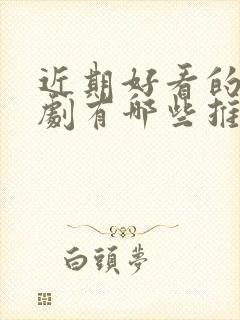 近期好看的
劇有哪些推
白頭夢